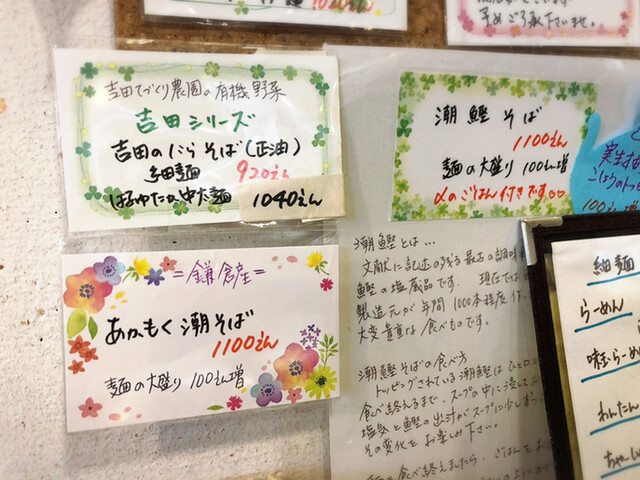 1020えん
予めご了承下さいませ。
吉田てづくり農園の有機野菜
吉田シリーズ
吉田のにらそば(正油)
細麺 920えん
はるゆたか中太麺 1040えん
=鎌倉産=
あかもく潮そば
1100えん
麺の大盛り 100えん増
潮鰹そば
1100えん
麺の大盛り 100えん増
〆のごはん付きです♡♡
潮鰹とは…
文献に記述の残る最古の調味
鰹の塩蔵品です。 現在では
製造元が年間 1000本程度
大変貴重な食べものです。
潮鰹そばの食べ方
トッピングされている潮鰹は ひと
食べ終えるまで、スープの中に浸して
塩気と鰹の出汁がスープに少しずつ
その変化をお楽しみ下さい。
麺を食べ終えましたら、ごはんを
実生
こしょうのトッ
100えん増
細麺
らーめん
味玉らーめん
わんたん
ちゃーしゅ